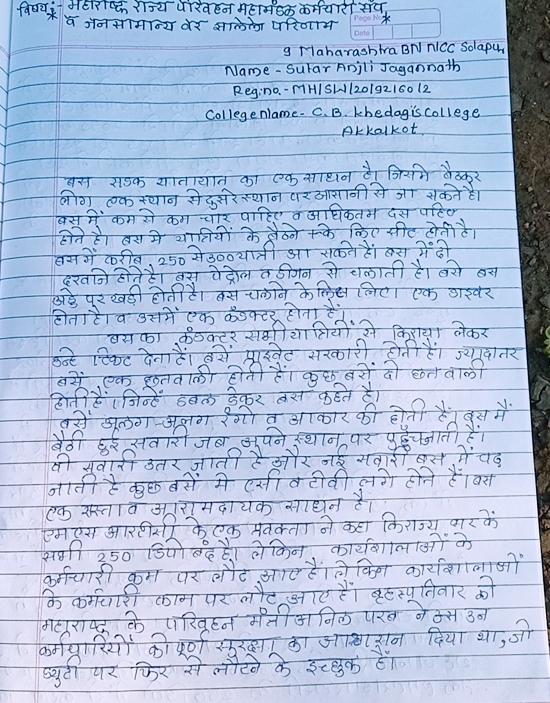 विषय :- महाराष्ट्र राज्य परिवहन महामंडळ कर्मचारी संप
व जनसामान्य वर झालेले परिणाम
Page No
Date
9 Maharashtra BN NCC Solapur
Name - Sutar Anjli Jagannath
Reg.no.- MH/SW/2019216012
College Name- C.B. Khedagi's College
Akkalkot.
बस सडक यातायात का एक साधन है। जिसमे बैठकर
लोग एक स्थान से दुसरे स्थान पर आसानी से जा सकते है।
बस में कम से कम चार पाहिए व अधिकतम दस पहिए
होते है। बस मे यात्रियों के बैठने के लिए सीट होती है।
बसमे करीब 250 से 300 यात्री आ सकते है। बस में दो
दरवाजे होते है। बस पेट्रोल व डीजल से चलाती है। बसे बस
अड्डे पर खडी होती है। बस चलाने के लिए लिए। एक ड्राइवर
होता है। व उसमें एक कंडक्टर होता है।
बस का कंडक्टर सभी यात्रियों से किराया लेकर
उन्हे टिकट देता है। बसें प्राइवेट सरकारी होती है। ज्यादातर
बसें एक छतवाली होती है। कुछ बसें दो छत वाली
होती है। जिन्हें डबल डेकर बस कहते है।
बसें अलग-अलग रंगो व आकार की होती है। बस में
बैठी हुई सवारी जब अपने स्थान पर पहुँच जाती है।
वो सवारी उतर जाती है और नई सवारी बस में चढ
जाती है कुछ बसें में एसी व टीवी लगे होने है। बस
एक सस्ता व आरामदायक साधन है।
एमएस आरटीसी के एक प्रवक्ता ने कहा कि राज्य भर के
सभी 250 डिपो बंद है। लेकिन कार्यशालाओं के
कर्मचारी कम पर लौट आए है। लेकिन कार्यशालाओं
के कर्मचारी काम पर लौट आए है। बृहस्पतिवार को
महाराष्ट्र के परिवहन मंत्री अनिल परब ने उन
कर्मचारियों को पूर्ण सुरक्षा का आश्वासन दिया था, जो
ड्युटी पर फिर से लौटने के इच्छुक है।